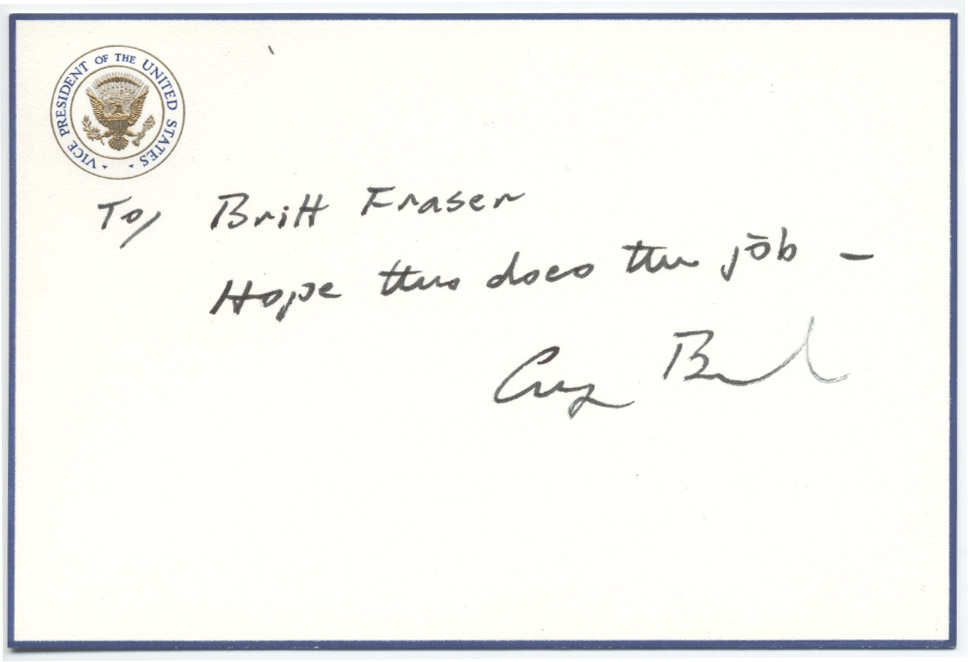 VICE PRESIDENT OF THE UNITED STATES
To/ Britt Fraser
Hope this does the job –
Gry Bush